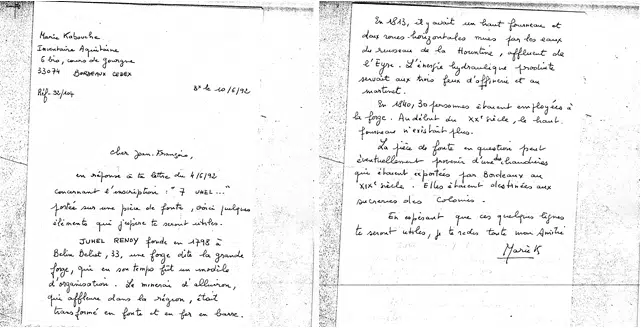 Marie Kabouche
Inventaire Aquitaine
6 bis, cours de Gourgue
33074 BORDEAUX CEDEX
Réf. 92/104
Bx le 10/6/92
Cher Jean-François,
en réponse à ta lettre du 4/6/92
concernant l'inscription : " 7 UHEL ..."
portée sur une pièce de fonte, voici quelques
éléments qui j'espère te seront utiles.
JUHEL RENOY fonde en 1798 à
Belin Beliet, 33, une forge dite la grande
forge, qui en son temps fût un modèle
d'organisation. Le minerai d'alluvion,
qui affleure dans la région, était
transformé en fonte et en fer en barre.
En 1813, il y avait un haut fourneau et
deux roues horizontales mues par les eaux
du ruisseau de la , affluent de
l'Eyre. L'énergie hydraulique produite
servait aux trois feux d'affinerie et au
martinet.
En 1840, 30 personnes étaient employées à
la forge. Au début du XXe siècle, le haut
fourneau n'existait plus.
La pièce de fonte en question peut
éventuellement provenir d'une des chaudières
qui étaient exportées par Bordeaux au
XIXe siècle. Elles étaient destinées aux
sucreries des Colonies.
En espérant que ces quelques lignes
te seront utiles, je te redis toute mon Amitié
Marie K